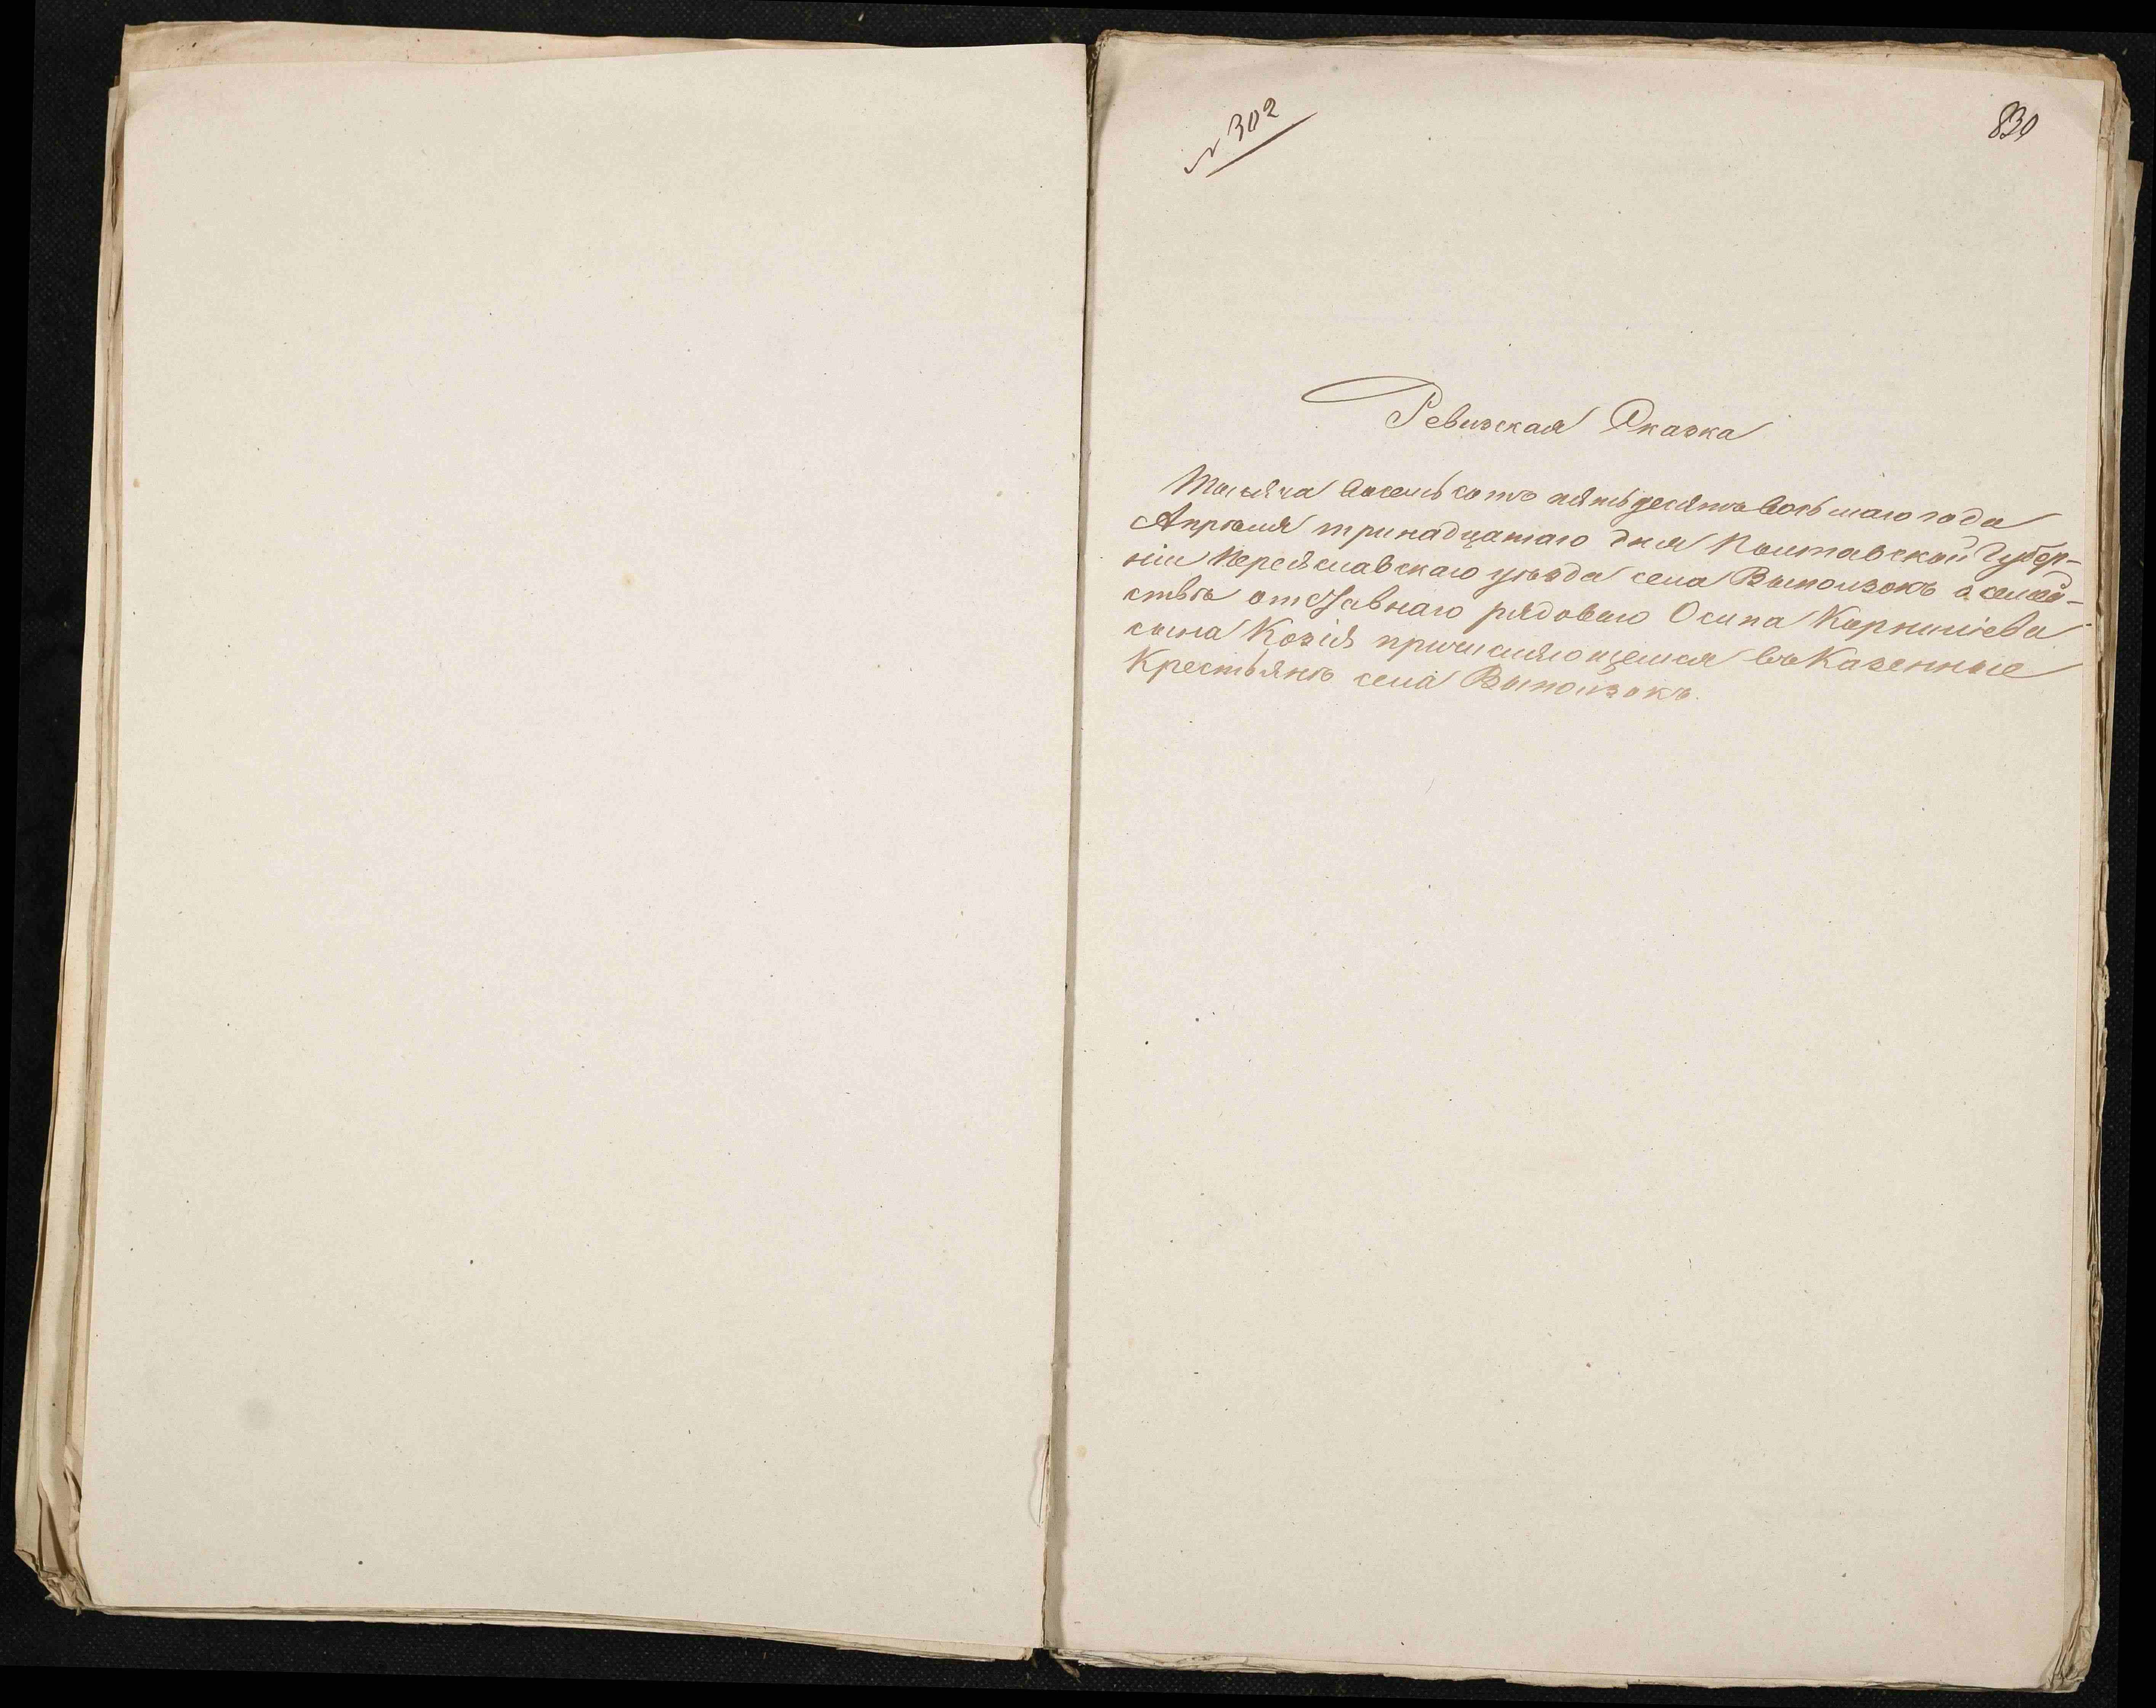 № 302
830
Ревизская Сказка
Тысяча восемь сотъ пять десятъ восьмаго года
Апрѣля тринадцатаго дня Полтавской Губер-
ніи Переяславскаго уѣзда села Выползокъ о семей-
ствѣ отставнаго рядоваго Осипа Корниліева
сына Козія причисляющемся въ Казенные
Крестьяне села Выползокъ.